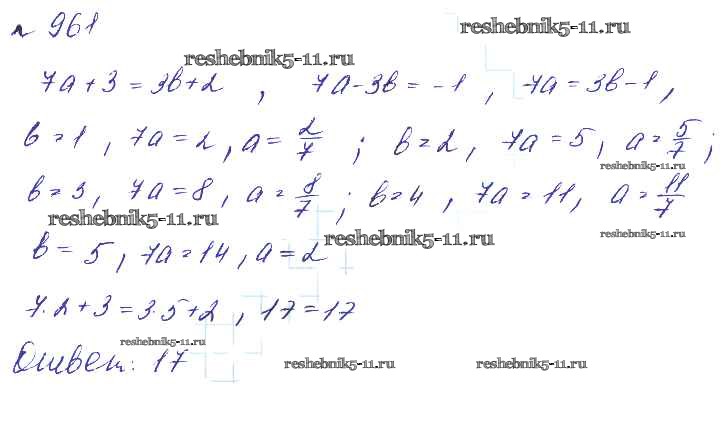 № 961
reshebnik5-11.ru
reshebnik5-11.ru
7a + 3 = 3b + 2 , 7a - 3b = -1 , 7a = 3b - 1 ,
b = 1 , 7a = 2 , a = 2/7 ; b = 2 , 7a = 5 , a = 5/7 ;
reshebnik5-11.ru
b = 3 , 7a = 8 , a = 8/7 ; b = 4 , 7a = 11 , a = 11/7
reshebnik5-11.ru
reshebnik5-11.ru
reshebnik5-11.ru
b = 5 , 7a = 14 , a = 2
7·2 + 3 = 3·5 + 2 , 17 = 17
reshebnik5-11.ru
Ответ: 17
reshebnik5-11.ru
reshebnik5-11.ru